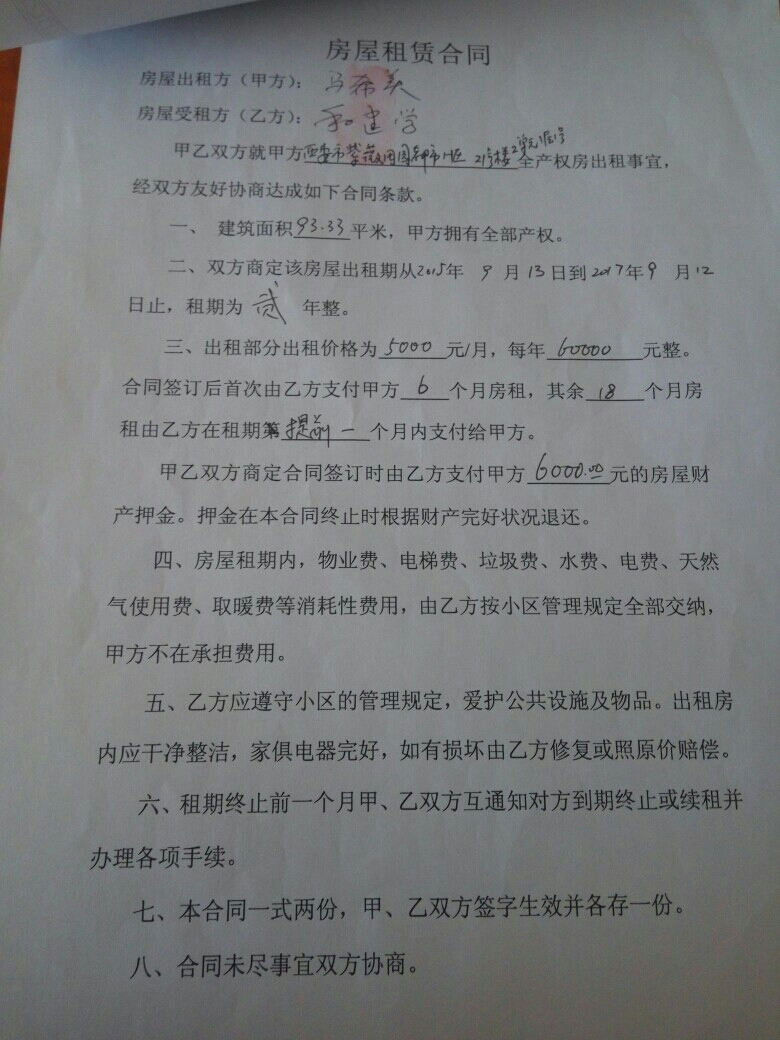 房屋租赁合同
房屋出租方（甲方）：马希美
房屋受租方（乙方）：和建学
甲乙双方就甲方西安市紫薇田园都市 区 21号楼2单元1层1号全产权房出租事宜，
经双方友好协商达成如下合同条款。
一、 建筑面积93.33平米，甲方拥有全部产权。
二、双方商定该房屋出租期从2015年 9 月13日到2017年9 月12
日止，租期为 贰 年整。
三、出租部分出租价格为5000元/月，每年60000元整。
合同签订后首次由乙方支付甲方 6 个月房租，其余 18 个月房
租由乙方在租期第提前一个月内支付给甲方。
甲乙双方商定合同签订时由乙方支付甲方6000.00元的房屋财
产押金。押金在本合同终止时根据财产完好状况退还。
四、房屋租期内，物业费、电梯费、垃圾费、水费、电费、天然
气使用费、取暖费等消耗性费用，由乙方按小区管理规定全部交纳，
甲方不在承担费用。
五、乙方应遵守小区的管理规定，爱护公共设施及物品。出租房
内应干净整洁，家俱电器完好，如有损坏由乙方修复或照原价赔偿。
六、租期终止前一个月甲、乙双方互通知对方到期终止或续租并
办理各项手续。
七、本合同一式两份，甲、乙双方签字生效并各存一份。
八、合同未尽事宜双方协商。